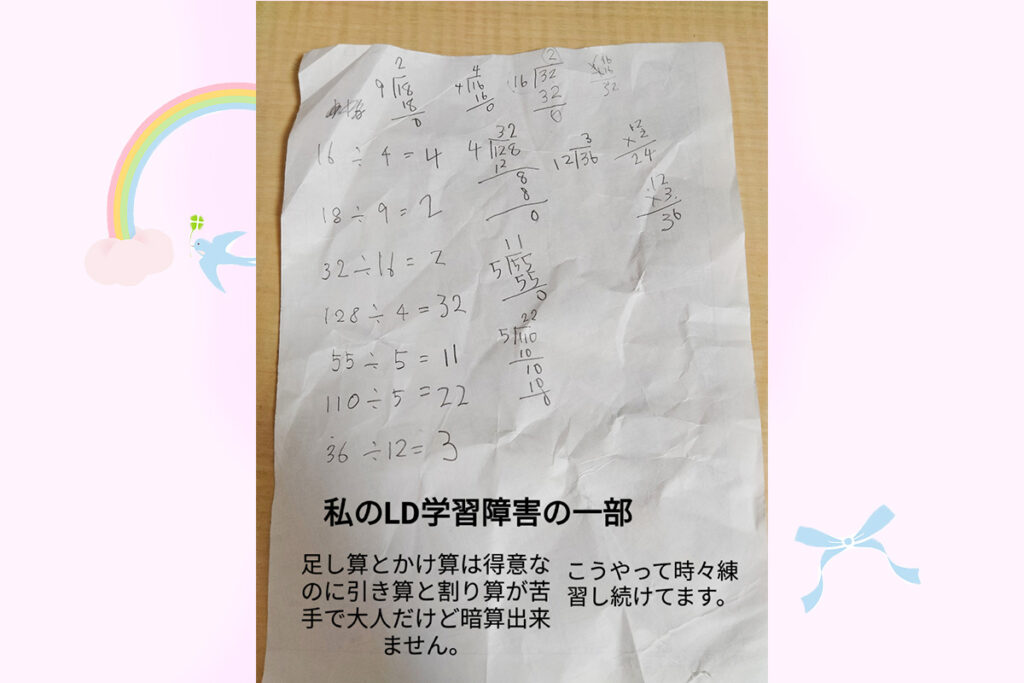 2
9)18
18
0
4
4)16
16
0
2
16)32
32
0
16
32
16 ÷ 4 = 4
32
4)128
12
8
8
0
3
12)36
12
×2
24
12
×3
36
18 ÷ 9 = 2
32 ÷ 16 = 2
11
5)55
55
0
128 ÷ 4 = 32
22
5)110
10
10
10
0
55 ÷ 5 = 11
110 ÷ 5 = 22
36 ÷ 12 = 3
私のLD学習障害の一部
足し算とかけ算は得意な
のに引き算と割り算が苦
手で大人だけど暗算出来
ません。
こうやって時々練
習し続けてます。